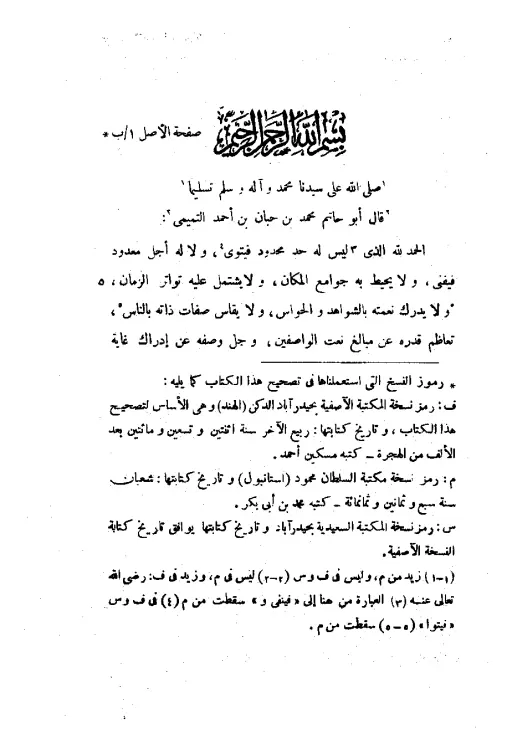 بسم الله الرحمن الرحيم صفحة الأصل ١/ب *
١صلى الله على سيدنا محمد وآله و سلم تسليما١
٢قال أبو حاتم محمد بن حبان بن أحمد التميمي٢:
الحمد لله الذى ٣ليس له حد محدود فيتوى٤، و لا له أجل معدود
فيفنى، و لا يحيط به جوامع المكان، و لا يشتمل عليه تواتر الزمان، ٥
٥و لا يدرك نعمته بالشواهد و الحواس، و لا يقاس صفات ذاته بالناس٥،
تعاظم قدره عن مبالغ نعت الواصفين، و جل وصفه عن إدراك غاية
* رموز النسخ التى استعملناها فى تصحيح هذا الكتاب كما يليه:
ف: رمز نسخة المكتبة الآصفية بحيدرآباد الدكن (الهند) و هى الأساس لتصحيح
هذا الكتاب، و تاريخ كتابتها: ربيع الآخر سنة اثنتين و تسعين و مائتين بعد
الألف من الهجرة ــ كتبه مسكين أحمد.
م: رمز نسخة مكتبة السلطان محمود (استانبول) و تاريخ كتابتها: شعبان
سنة سبع و ثمانين و ثمانمائة ــ كتبه محمد بن أبى بكر.
س: رمز نسخة المكتبة السعيدية بحيدرآباد و تاريخ كتابتها يوافق تاريخ كتابة
النسخة الآصفية.
(١-١) زيد من م، وليس فى ف و س (٢-٢) ليس فى م، و زيد فى ف: رضى الله
تعالى عنه (٣) العبارة من هنا إلى « فيفنى و » سقطت من م (٤) فى ف و س
« فيتوا » (٥-٥) سقطت من م.